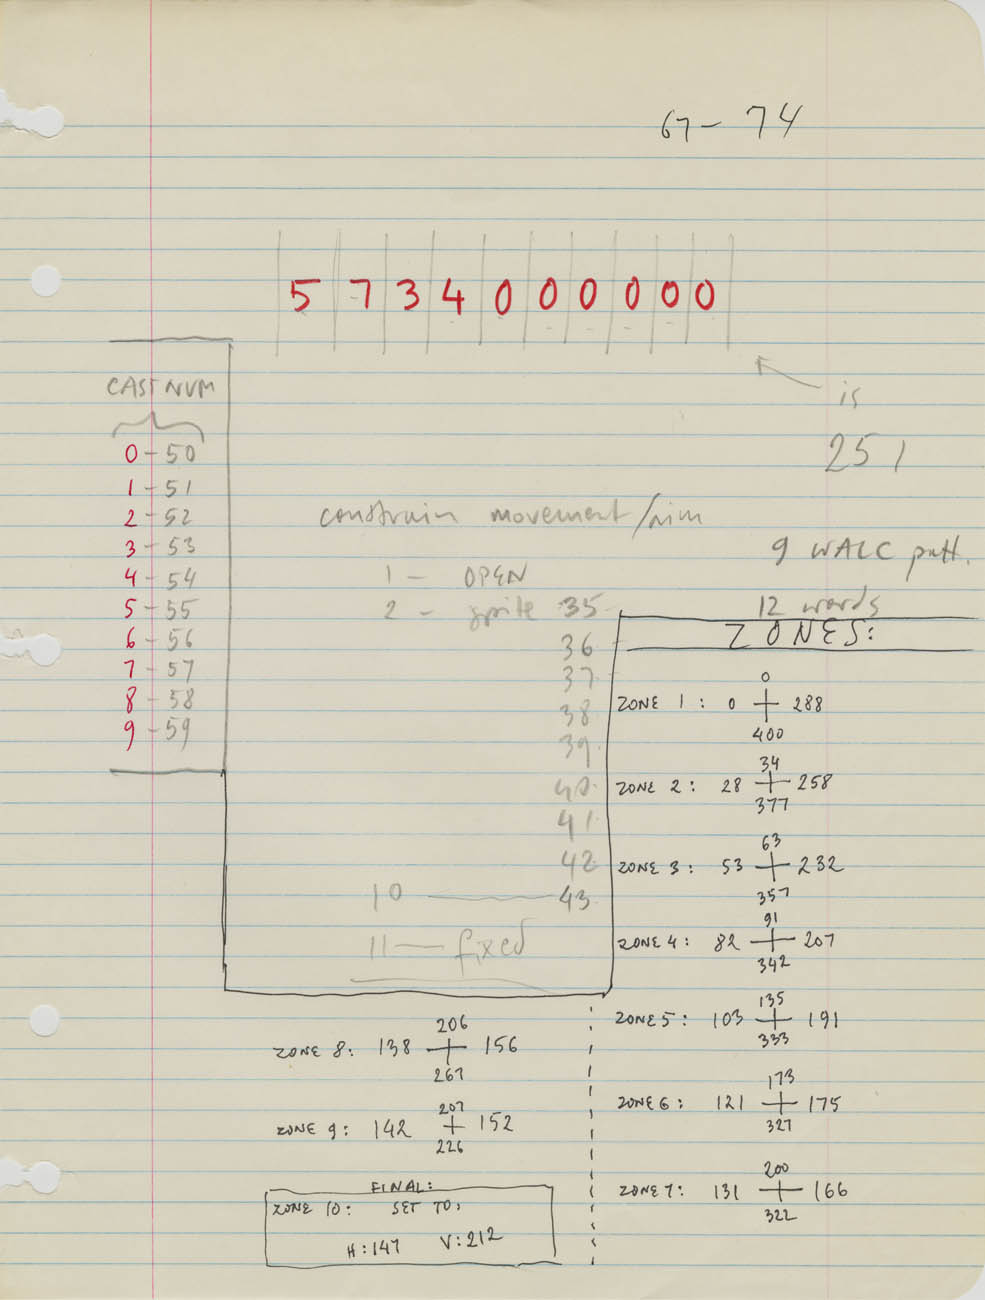 67 - 74
5 7 3 4 0 0 0 0 0 0
is
251
CAST NUM
0 - 50
1 - 51
2 - 52
3 - 53
4 - 54
5 - 55
6 - 56
7 - 57
8 - 58
9 - 59
constrain movement/aim
1 - OPEN
2 - sprite 35
36
37
38
39
40
41
42
10 — 43
11 — fixed
9 WALC patt.
12 words
ZONES:
0
ZONE 1: 0 + 288
400
34
ZONE 2: 28 + 258
377
63
ZONE 3: 53 + 232
357
91
ZONE 4: 82 + 207
342
135
ZONE 5: 103 + 191
333
173
ZONE 6: 121 + 175
327
200
ZONE 7: 131 + 166
322
206
ZONE 8: 138 + 156
267
207
ZONE 9: 142 + 152
226
FINAL:
ZONE 10: SET TO:
H: 147 V: 212